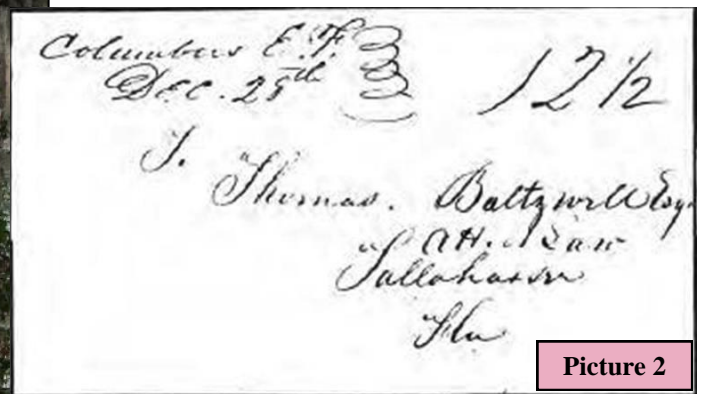 Columbus E. F.
Dec. 25th
12 1/2
T.
Thomas. Baltzwell Esq.
Att. Law
Tallahassee
Fla
Picture 2